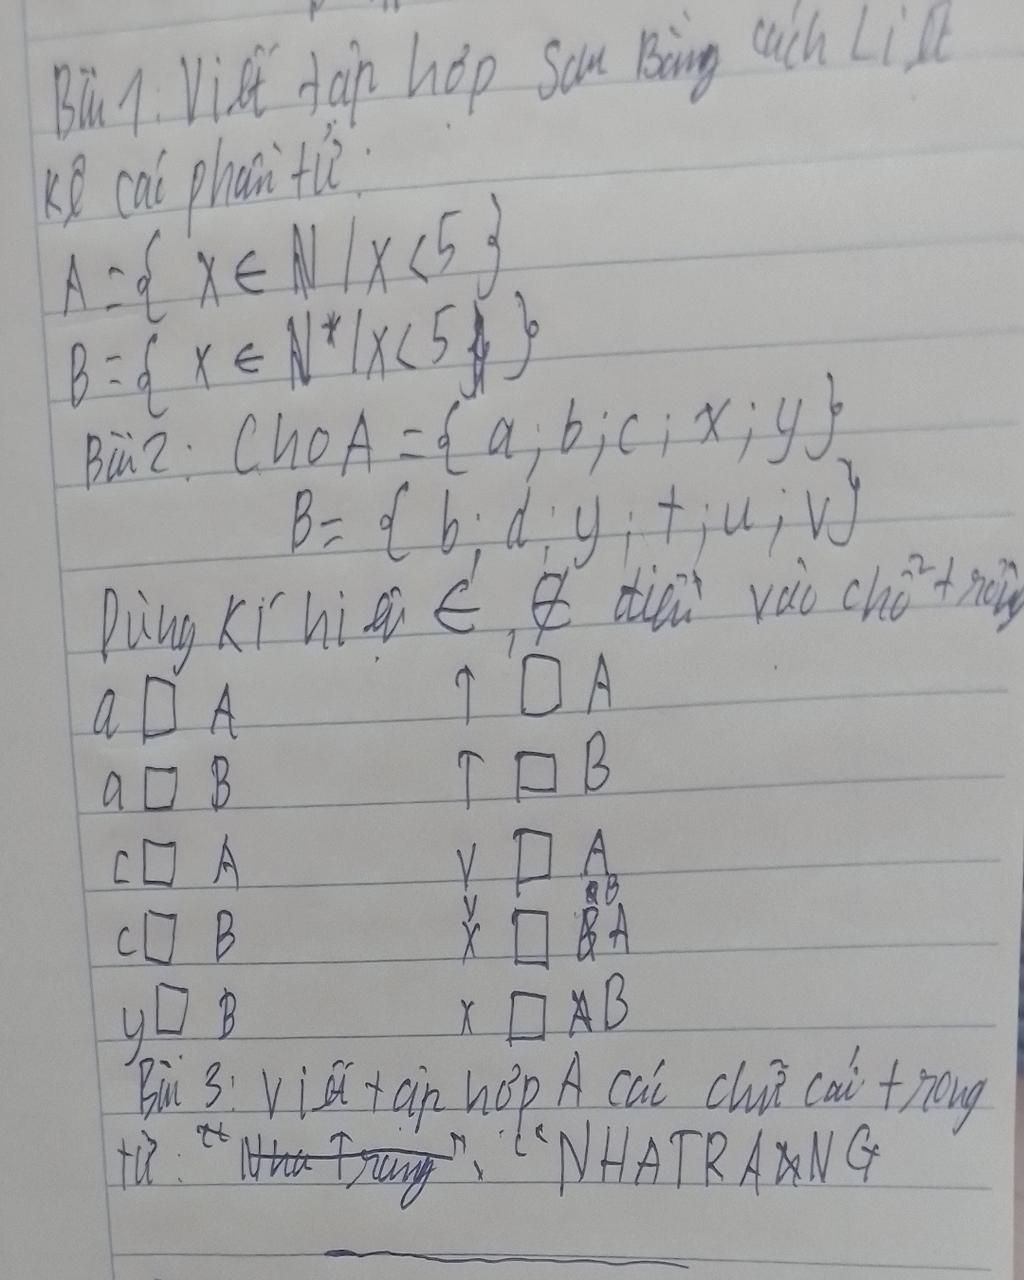 Bài 1: Viết tập hợp sau Bằng cách Liệt
kê các phần tử:
A = { x ∈ N / x < 5 }
B = { x ∈ N* / x < 5 }
Bài 2: Cho A = { a ; b ; c ; x ; y }
B = { b ; d ; y ; t ; u ; v }
Dùng kí hiệu ∈ , ∉ điền vào chỗ trống
a □ A ↑ □ A
a □ B ↑ □ B
c □ A v □ A
c □ B x □ A
y □ B x □ B
Bài 3: Viết tập hợp A các chữ cái trong
từ : " Nha Trang ". "NHATRANG